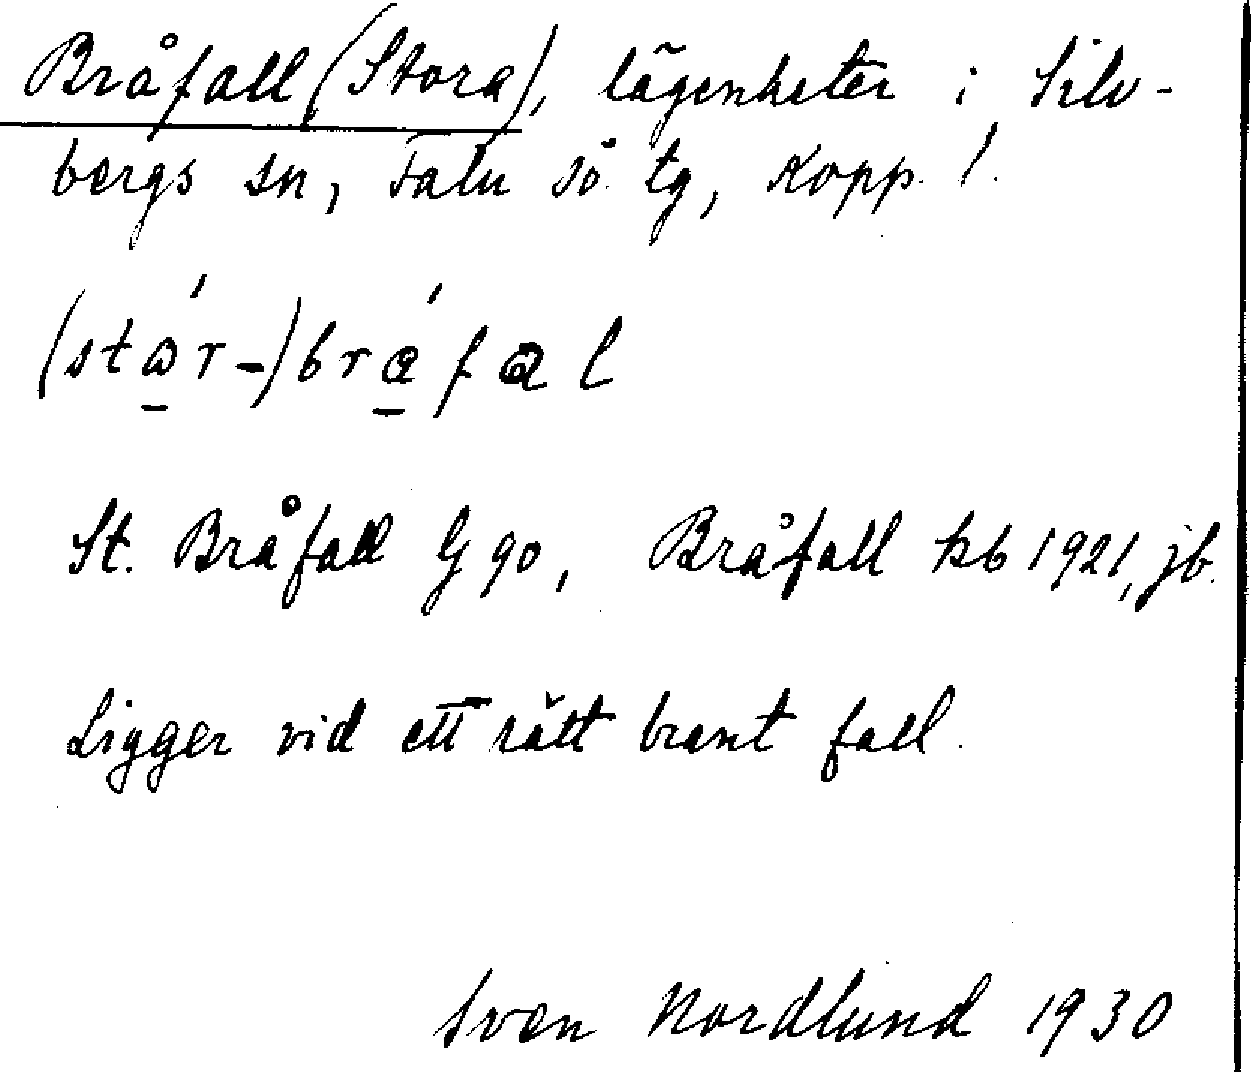 Bråfall (Stora), lägenheter i Silv-
bergs sn, Falu sö. tg, Kopp. l.
St. Bråfall G 90, Bråfall kb 1921, jb.
Ligger vid ett rätt brant fall.
Sven Nordlund 1930